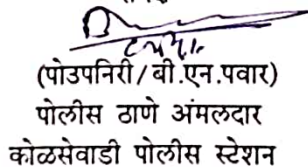 (पोउपनिरी/बी.एन.पवार)
पोलीस ठाणे अंमलदार
कोळसेवाडी पोलीस स्टेशन